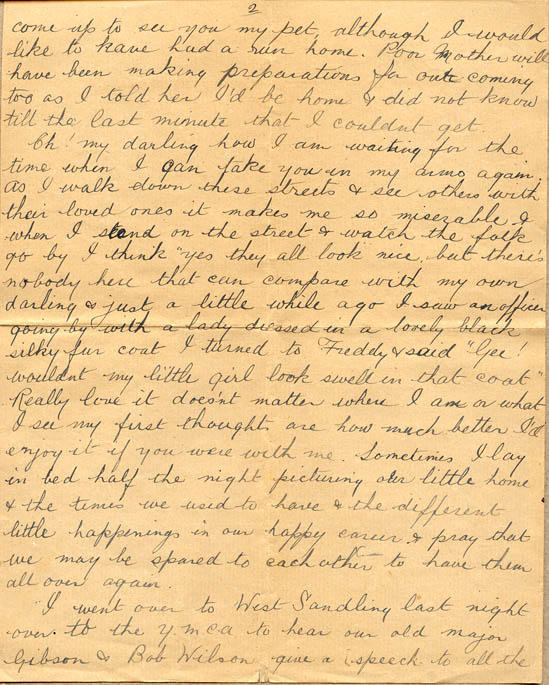 2
come up to see you my pet, although I would
like to have had a run home. Poor Mother will
have been making preparations for our coming
too as I told her I'd be home & did not know
till the last minute that I couldnt get.
Oh! my darling how I am waiting for the
time when I can take you in my arms again.
As I walk down these streets & see others with
their loved ones it makes me so miserable &
when I stand on the street & watch the folk
go by I think "yes they all look nice, but there's
nobody here that can compare with my own
darling & just a little while ago I saw an officer
going by with a lady dressed in a lovely black
silky fur coat I turned to Freddy & said "Gee!
wouldnt my little girl look swell in that coat"
Really love it doesn't matter where I am or what
I see my first thoughts are how much better I'd
enjoy it if you were with me. Sometimes I lay
in bed half the night picturing our little home
& the times we used to have & the different
little happenings in our happy career & pray that
we may be spared to each other to have them
all over again.
I went over to West Sandling last night
over to the Y.M.C.A to hear our old major
Gibson & Bob Wilson give a speech to all the